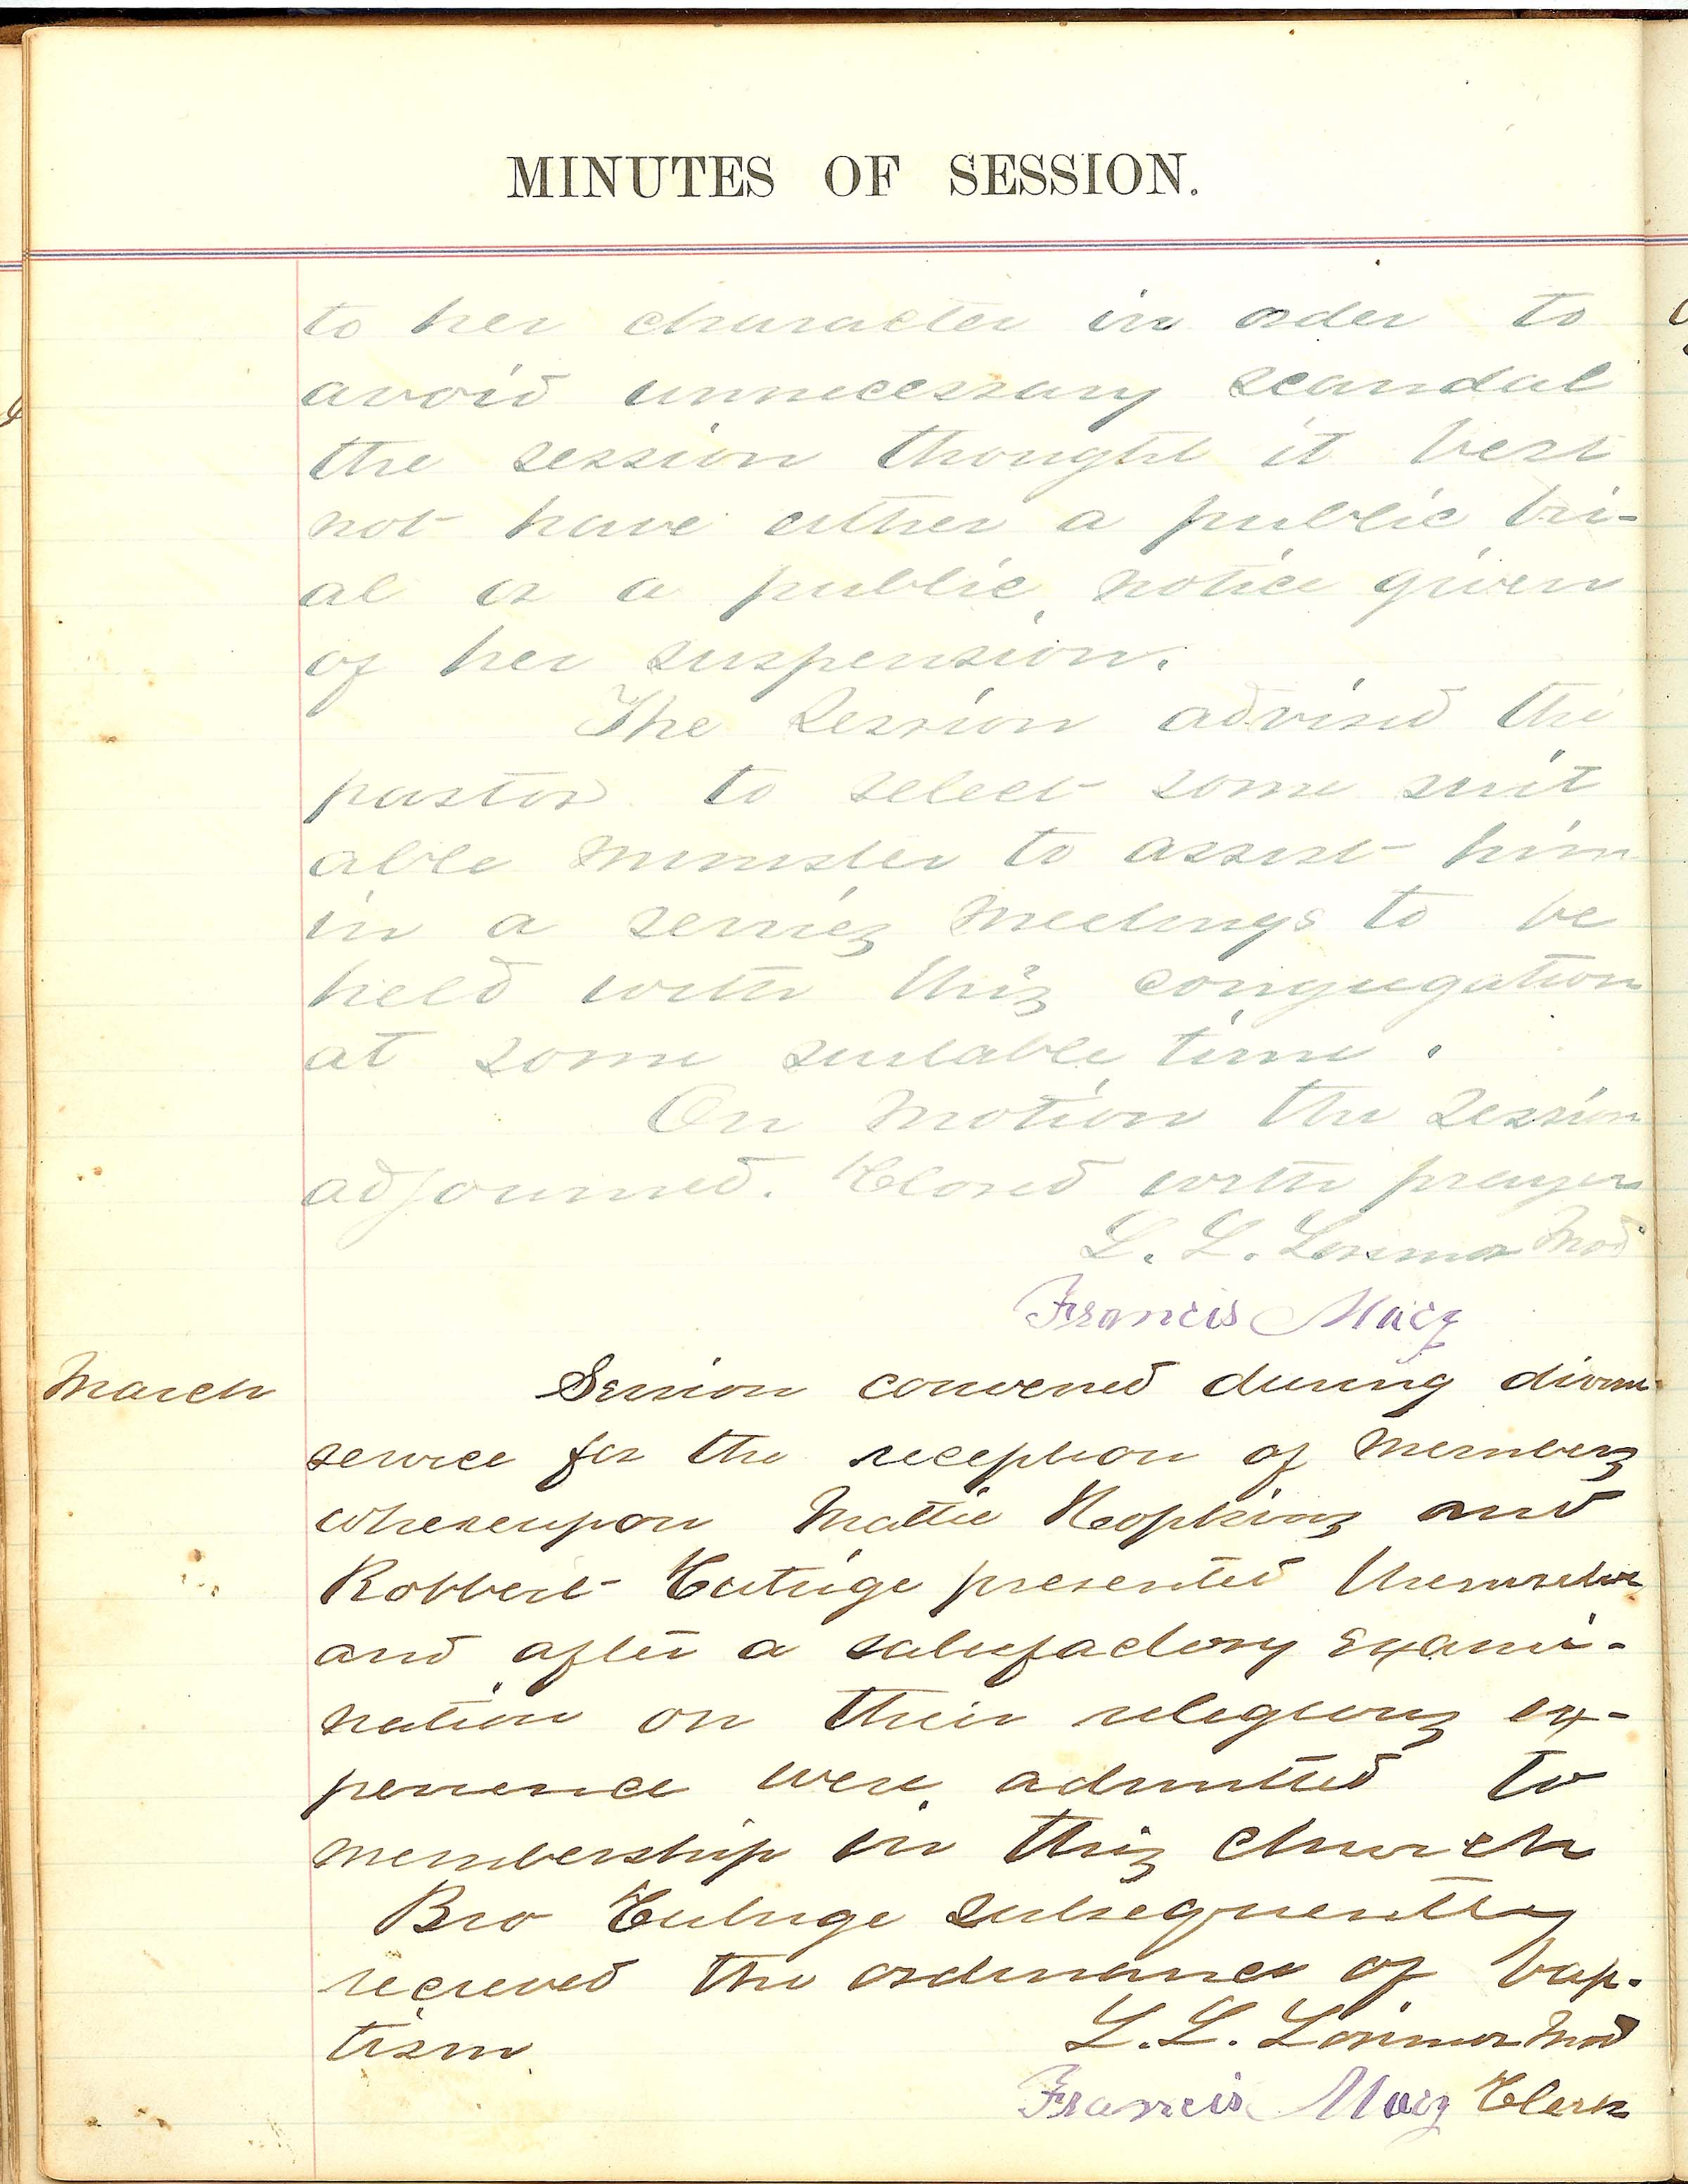 MINUTES OF SESSION.
to her character in order to
avoid unnecessary scandal
the session thought it best
not have either a public tri-
al or a public notice given
of her suspension.
The Session advised the
pastor to select some suit
able minister to assist him
in a serries meetings to be
held with this congregation
at some suitable time.
On motion the session
adjourned. Closed with prayer
L. L. Lorimor Mod
Francis Macy
March Session convened during divine
service for the reception of members
whereupon Mattie Hopkins and
Robbert presented themselves
and after a satisfactory exami-
nation on their religious ex-
perience were admitted to
membership in this church
Bro subsequently
recieved the ordinance of bap-
tism
L. L. Lorimor Mod
Francis Macy Clerk